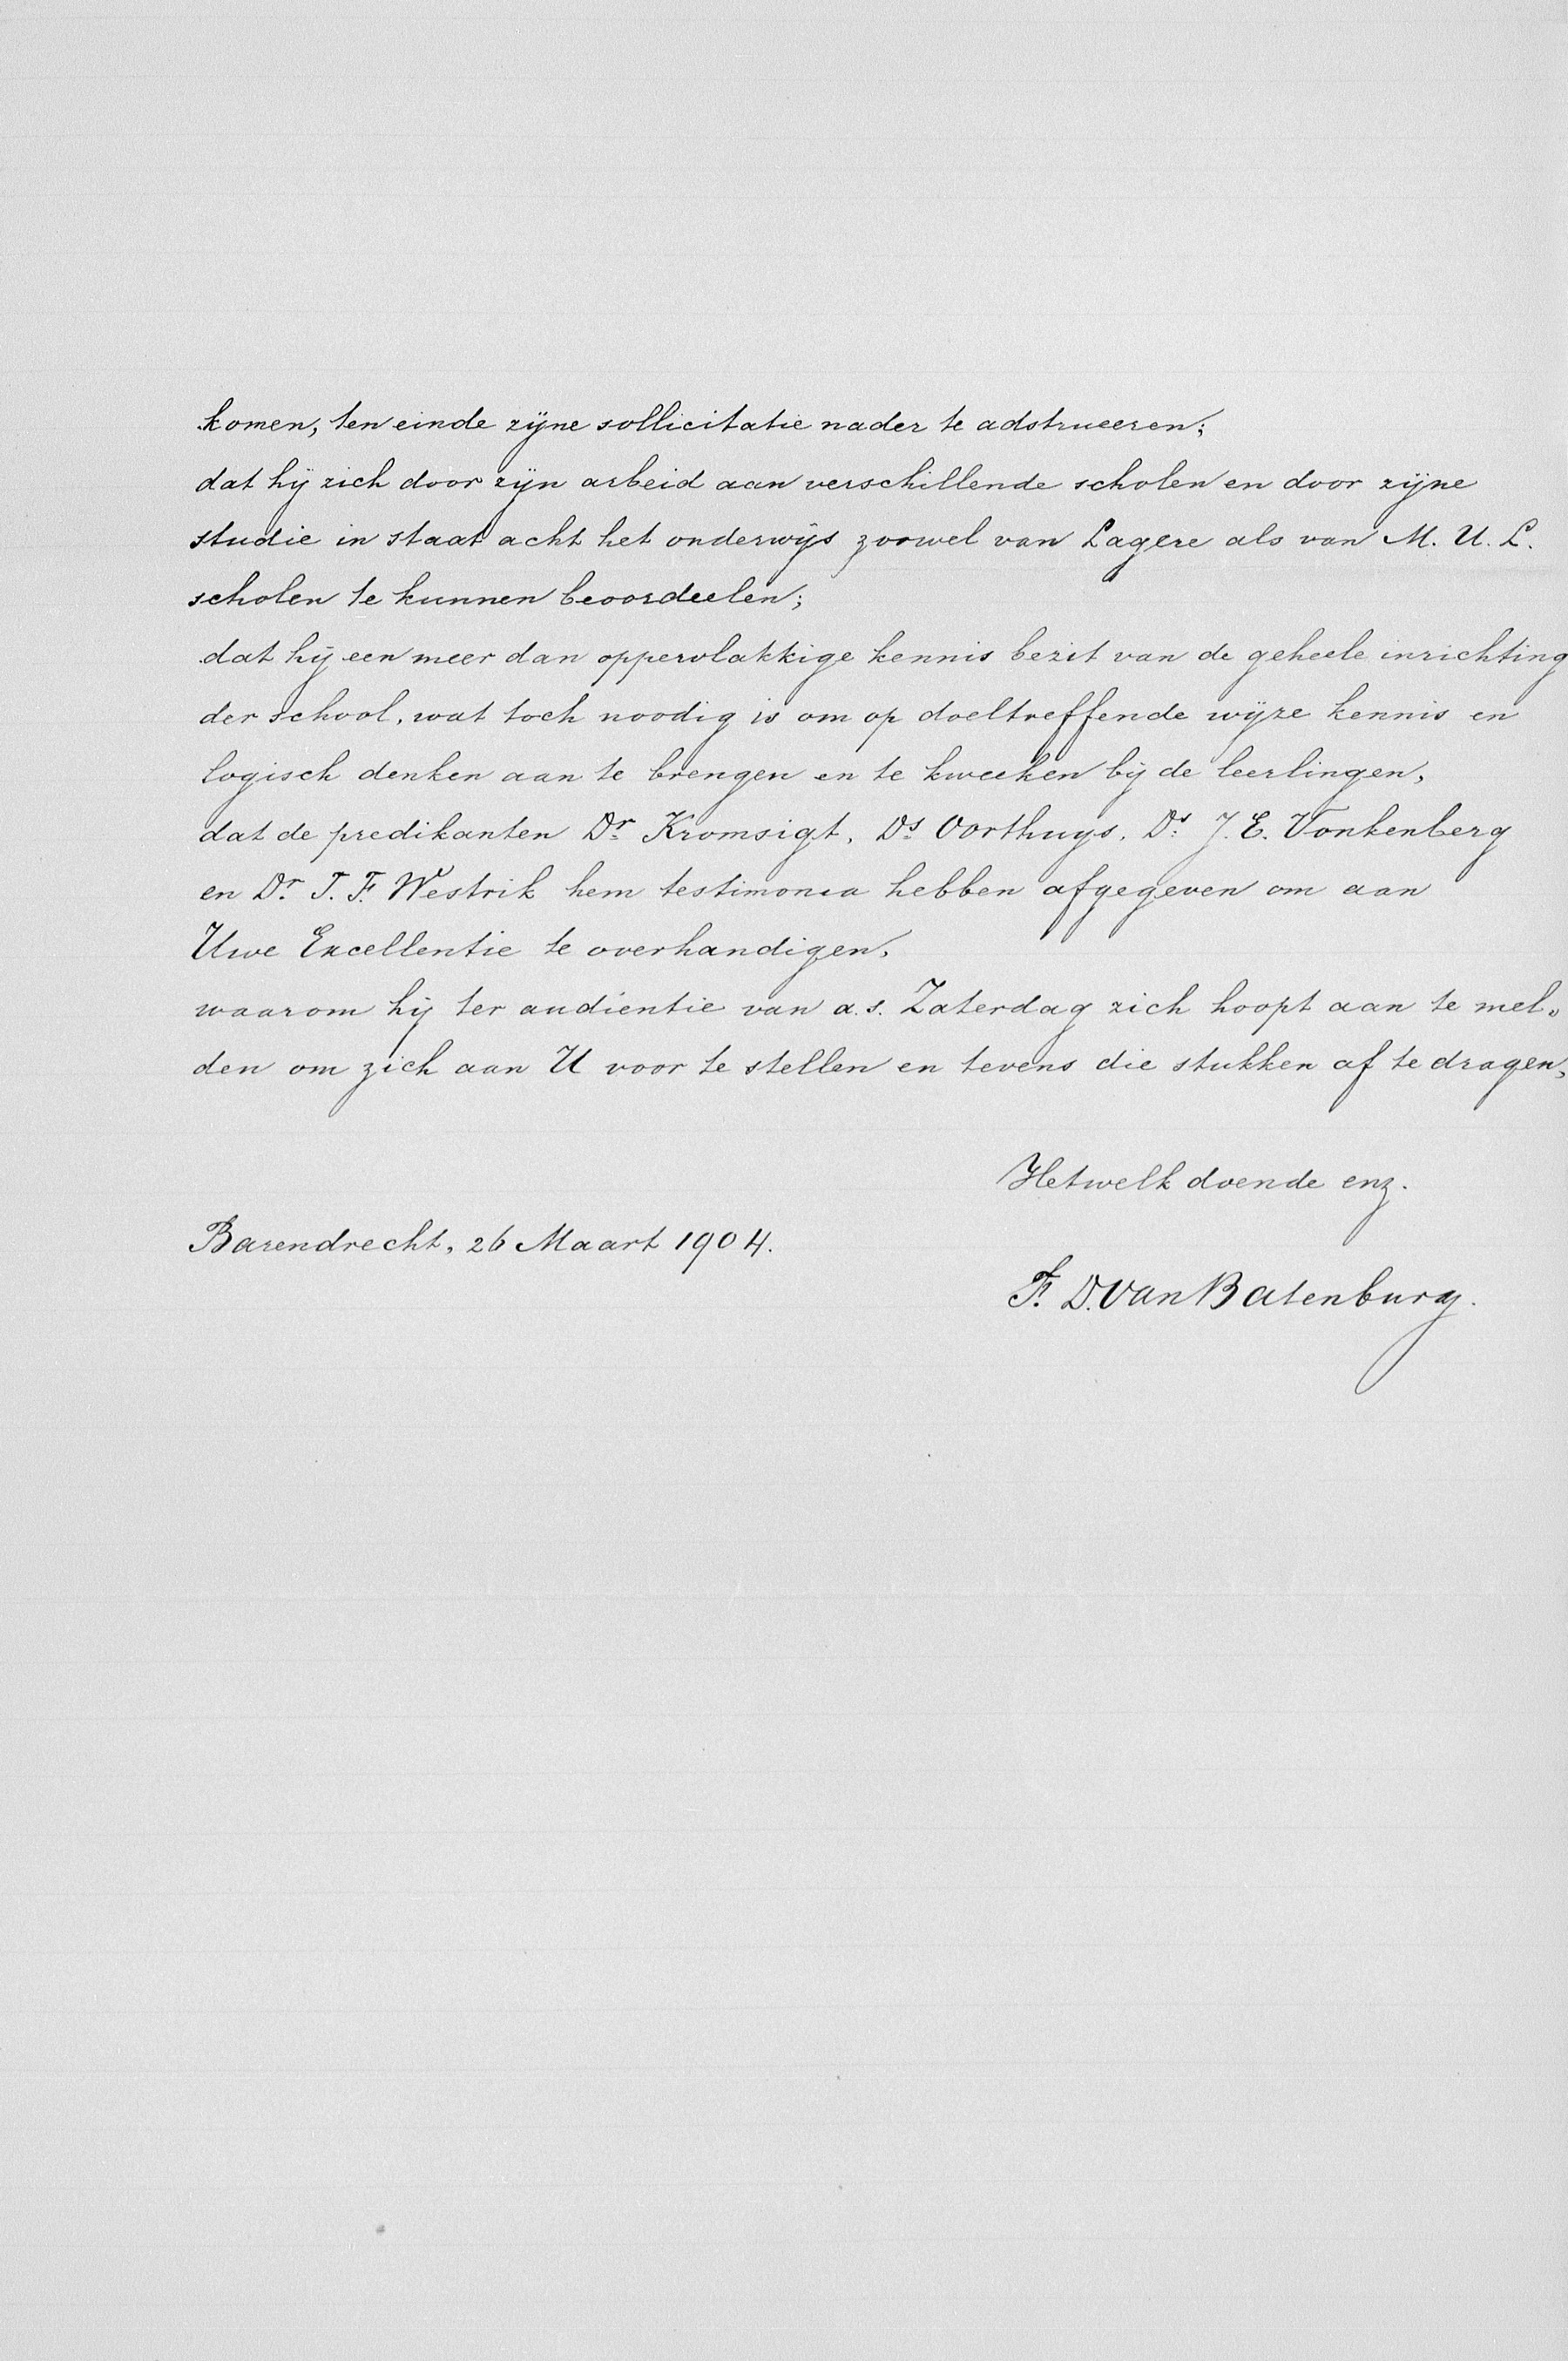 komen, ten einde zijne sollicitatie nader te adstrueeren;
dat hij zich door zijn arbeid aan verschillende scholen en door zijne
studie in staat acht het onderwijs zoowel van Lagere als van M. U. L.
scholen te kunnen beoordeelen;
dat hij een meer dan oppervlakkige kennis bezit van de geheele inrichting
der school, wat toch noodig is om op doeltreffende wijze kennis en
logisch denken aan te brengen en te kweeken bij de leerlingen,
dat de predikanten Dr. Kromsigt, Ds. Oorthuys, Ds. J. E. Vonkenberg
en Dr. T. F. Westrik hem testimonia hebben afgegeven om aan
Uwe Excellentie te overhandigen,
waarom hij ter audientie van a.s. Zaterdag zich hoopt aan te mel-
den om zich aan U voor te stellen en tevens die stukken af te dragen,
Hetwelk doende enz.
Barendrecht, 26 Maart 1904.
F. D. van Batenburg.